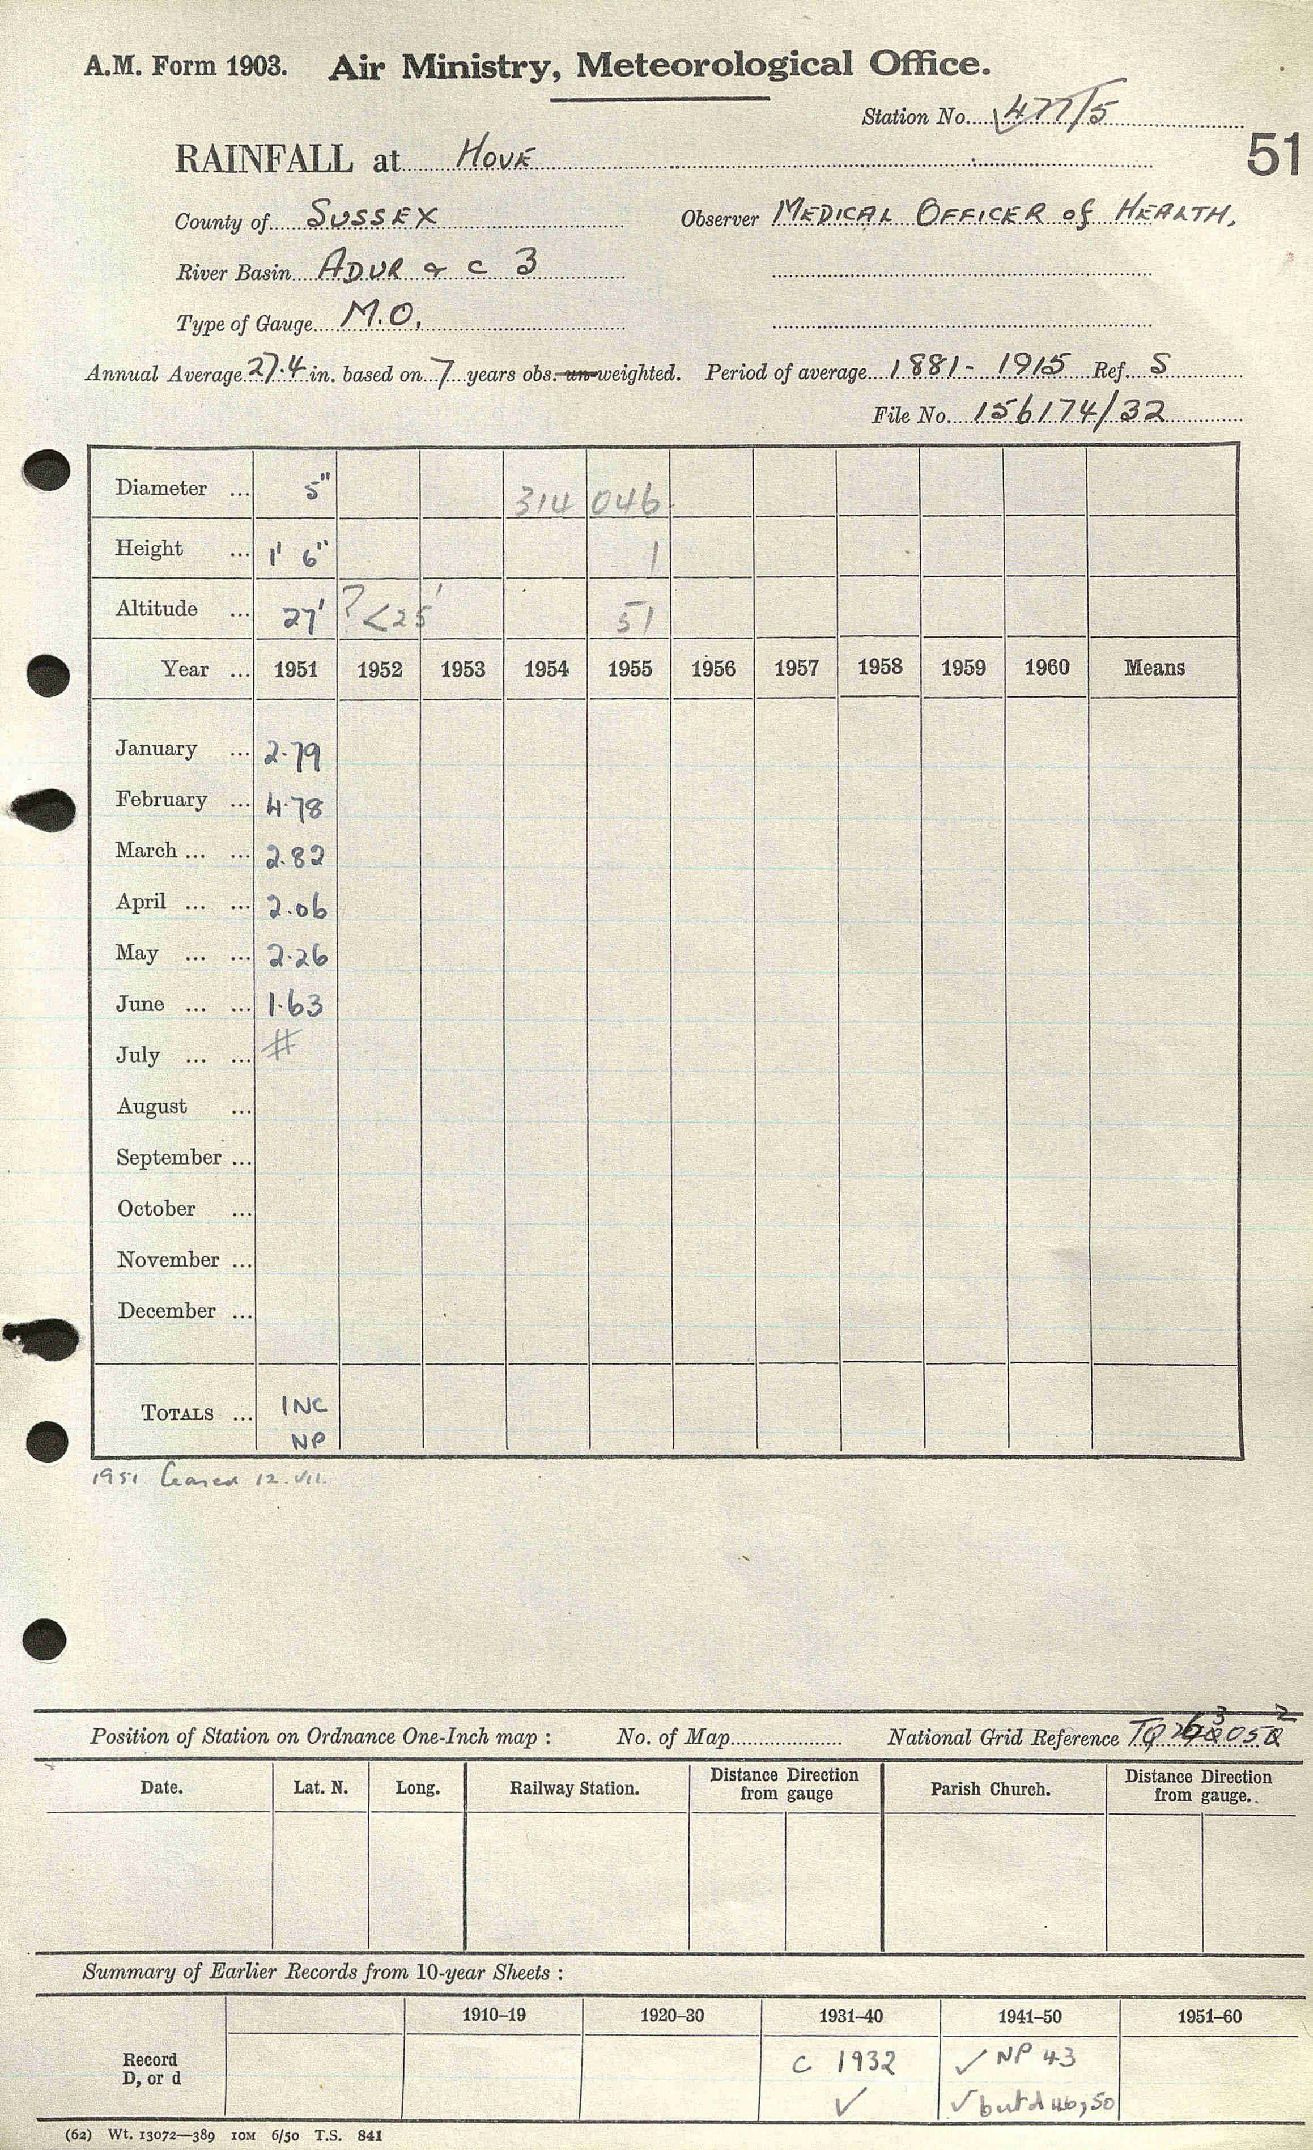 A.M. Form 1903. Air Ministry, Meteorological Office.
Station No. 477/5
51
RAINFALL at Hove
County of Sussex Observer Medical Officer of Health,
River Basin Adur & c 3
Type of Gauge M.O.
Annual Average 27.4 in. based on 7 years obs. un-weighted. Period of average 1881 - 1915 Ref. S
File No. 156174/32
Diameter ... 5" 314 046
Height ... 1' 6" 1
Altitude ... 27' ? <25' 51
Year ... 1951 1952 1953 1954 1955 1956 1957 1958 1959 1960 Means
January ... 2.79
February ... 4.78
March ... ... 2.82
April ... ... 2.06
May ... ... 2.26
June ... ... 1.63
July ... ... #
August ...
September ...
October ...
November ...
December ...
TOTALS ... INC
NP
1951 Ceased 12.VII.
Position of Station on Ordnance One-Inch map : No. of Map National Grid Reference TQ
Date. Lat. N. Long. Railway Station. Distance Direction from gauge Parish Church. Distance Direction from gauge.
Summary of Earlier Records from 10-year Sheets :
1910–19 1920–30 1931–40 1941–50 1951–60
Record D, or d c 1932 ✓ NP 43
✓ ✓ but d 46, 50
(62) Wt. 13072—389 10M 6/50 T.S. 841